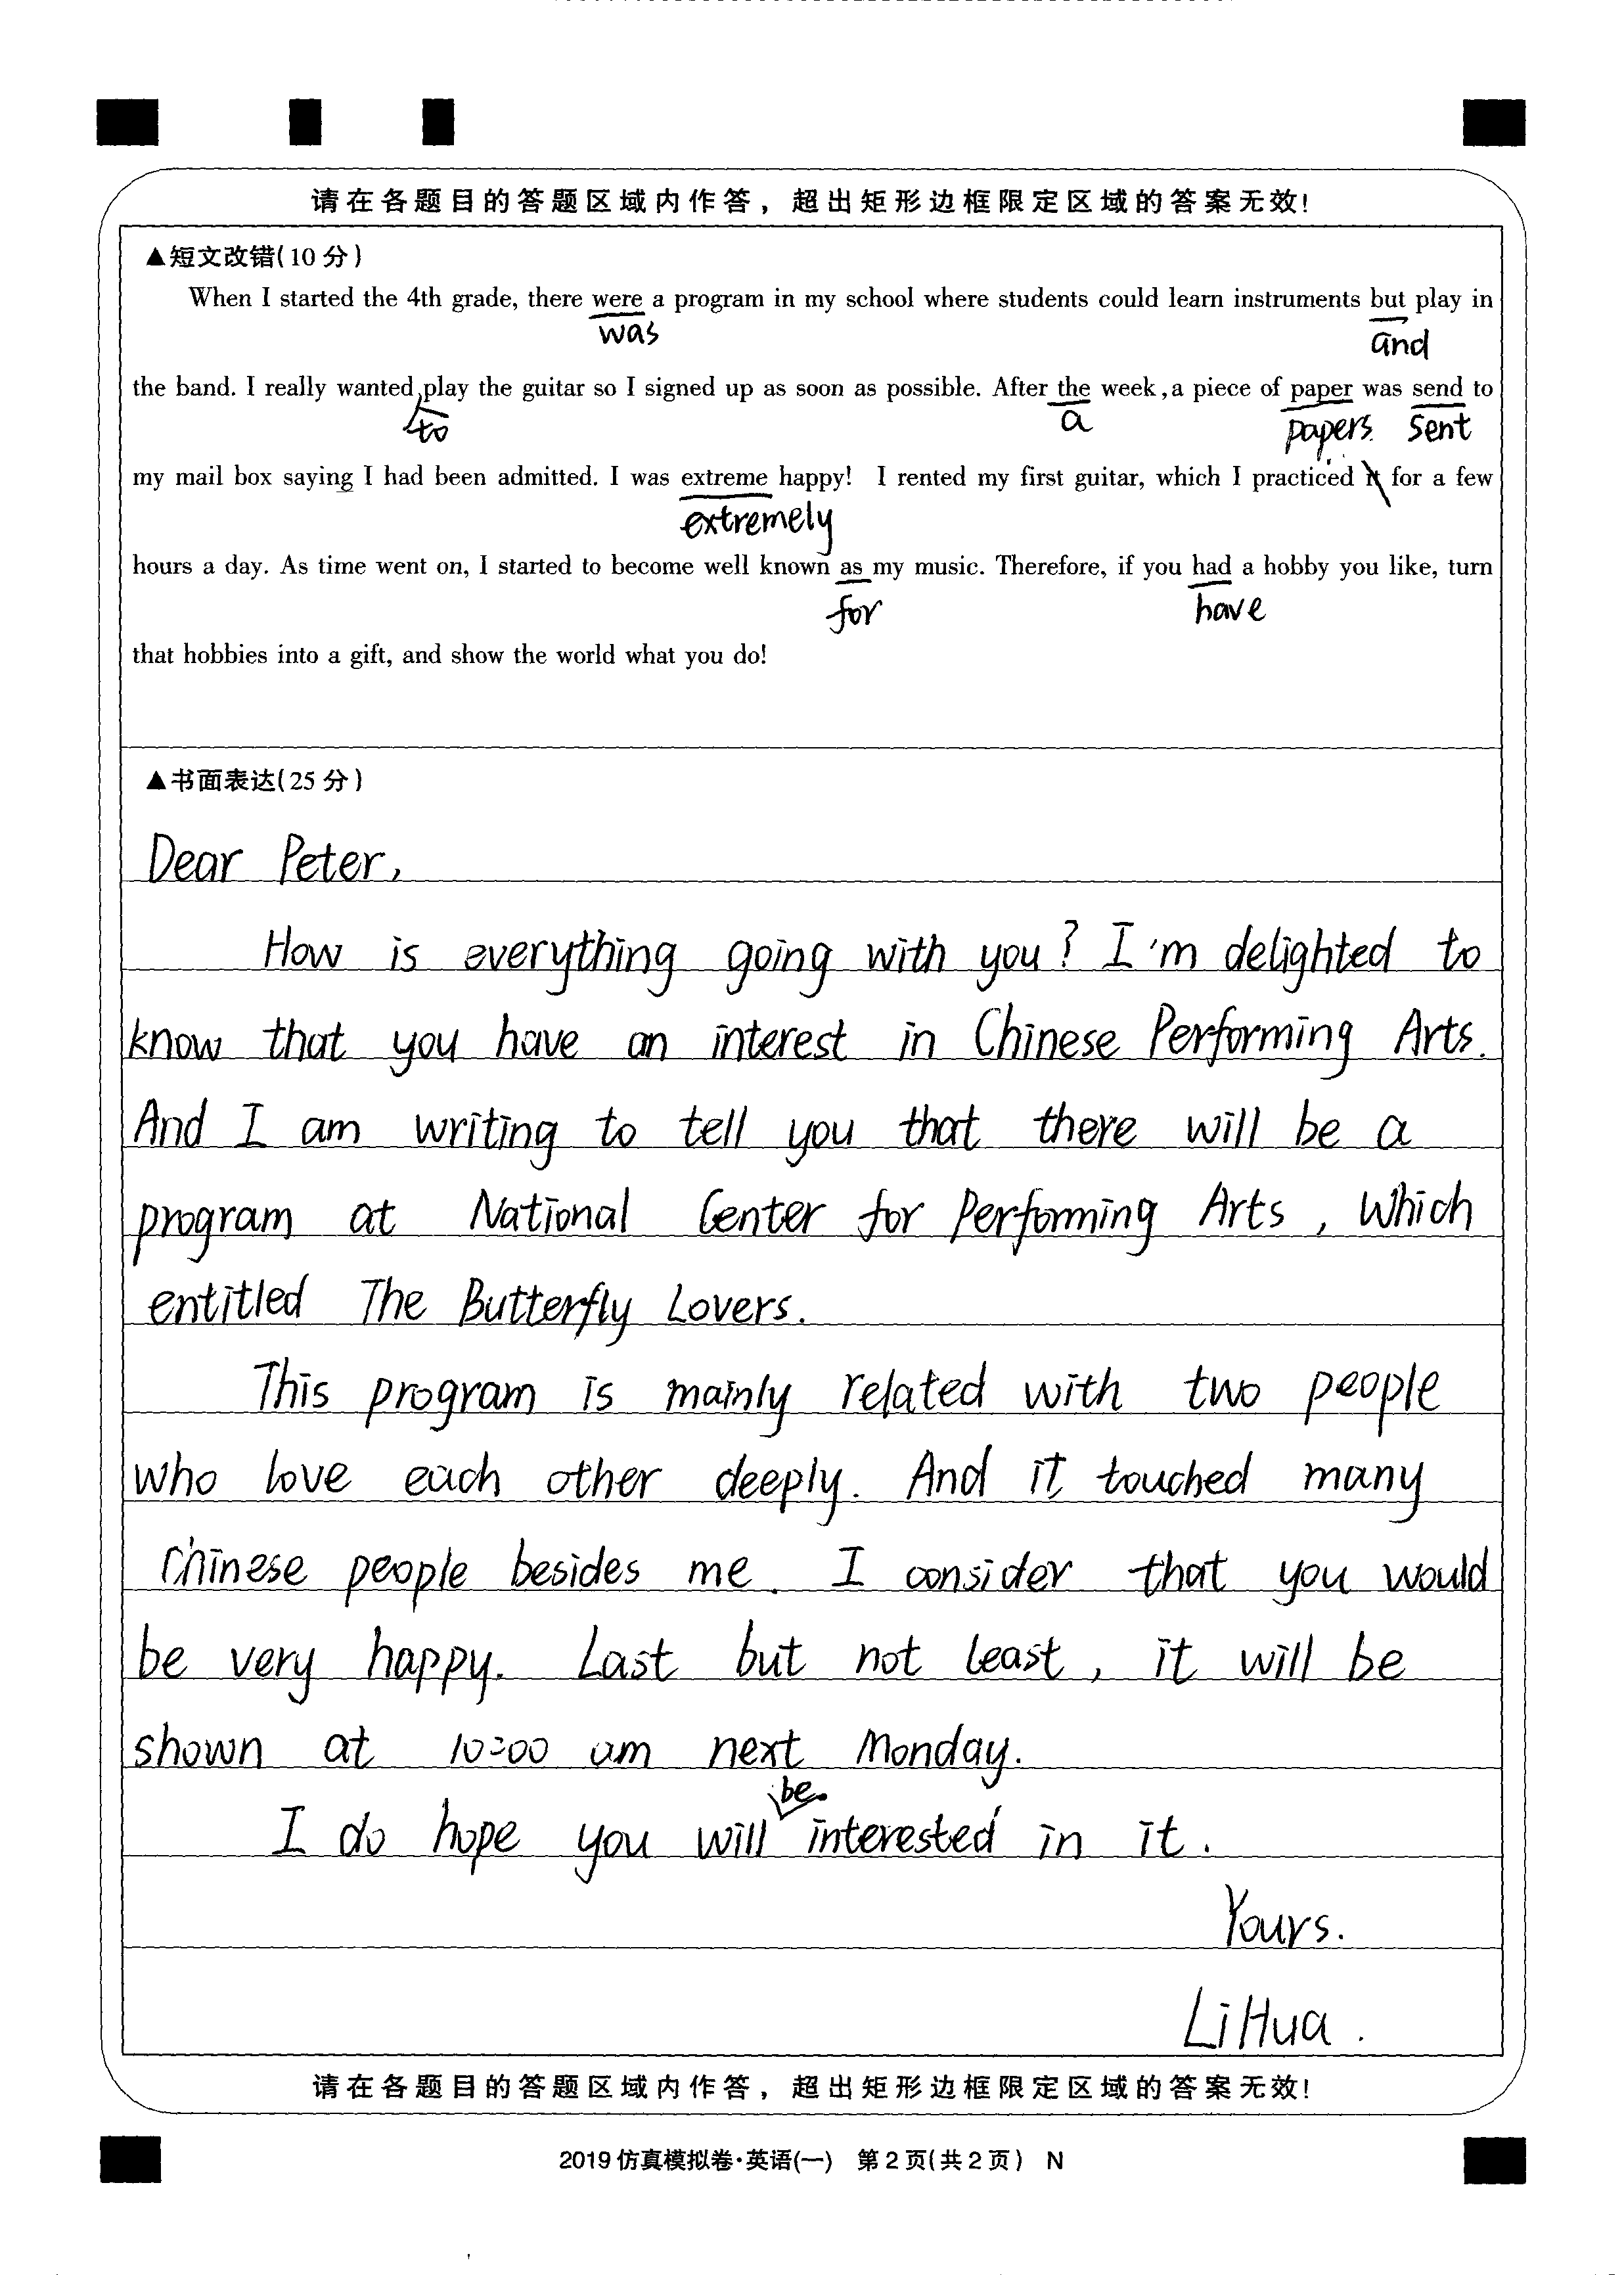 请在各题目的答题区域内作答，超出矩形边框限定区域的答案无效!
▲短文改错(10分)
When I started the 4th grade, there were a program in my school where students could learn instruments but play in
was
and
the band. I really wanted play the guitar so I signed up as soon as possible. After the week, a piece of paper was send to
to
a
papers.
sent
my mail box saying I had been admitted. I was extreme happy! I rented my first guitar, which I practiced it for a few
extremely
hours a day. As time went on, I started to become well known as my music. Therefore, if you had a hobby you like, turn
for
have
that hobbies into a gift, and show the world what you do!
▲书面表达(25分)
Dear Peter,
How is everything going with you? I'm delighted to
know that you have an interest in Chinese Performing Arts.
And I am writing to tell you that there will be a
program at National Center for Performing Arts, which
entitled The Butterfly Lovers.
This program is mainly related with two people
who love each other deeply. And it touched many
Chinese people besides me. I consider that you would
be very happy. Last but not least, it will be
shown at 10:00 am next Monday.
be
I do hope you will interested in it.
Yours.
Li Hua.
请在各题目的答题区域内作答，超出矩形边框限定区域的答案无效!
2019仿真模拟卷·英语(一) 第2页(共2页) N